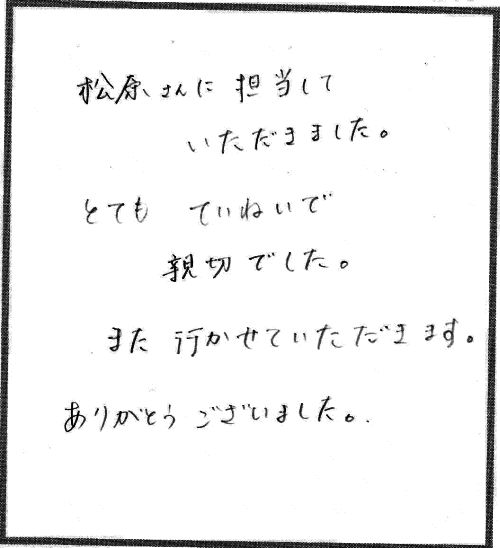 松原さんに 担当して
いただきました。
とても ていねいで
親切でした。
また 行かせていただきます。
ありがとうございました。